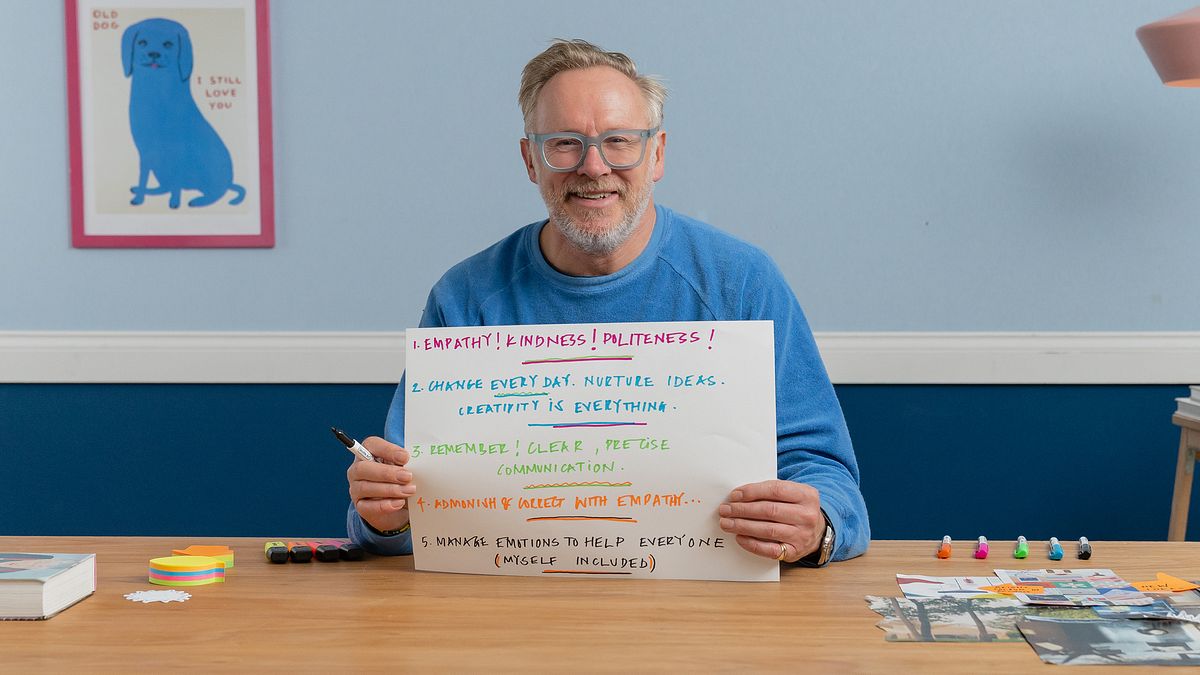 OLD
DOG
I STILL
LOVE
YOU
1. EMPATHY! KINDNESS! POLITENESS!
2. CHANGE EVERY DAY. NURTURE IDEAS.
CREATIVITY IS EVERYTHING.
3. REMEMBER! CLEAR, PRECISE
COMMUNICATION.
4. ADMONISH & CORRECT WITH EMPATHY...
5. MANAGE EMOTIONS TO HELP EVERYONE
(MYSELF INCLUDED)